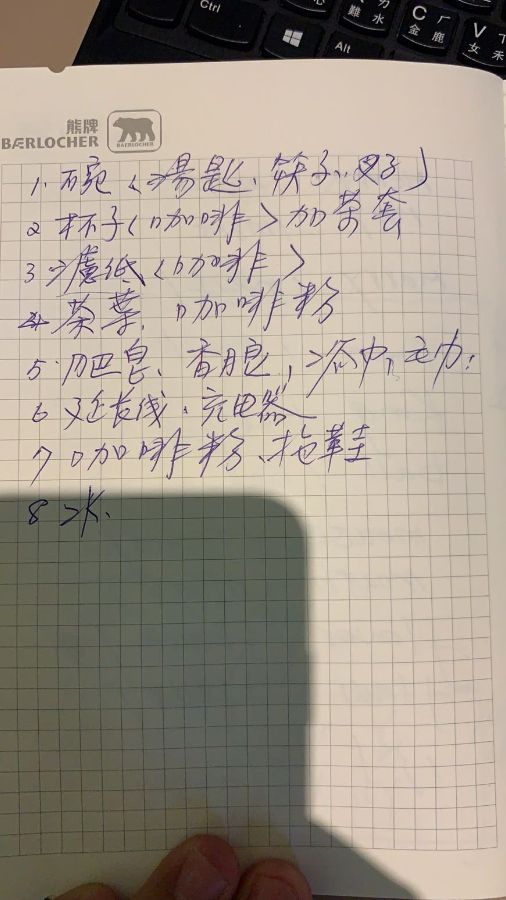 Ctrl
Alt
C 金 鹿
V 女
熊牌
BÆRLOCHER
BAERLOCHER
1. 碗(湯匙、筷子、叉子)
2 杯子(咖啡)加茶套
3 濾紙(咖啡)
4 茶葉、咖啡粉
5 肥皂、香皂,浴巾,毛巾;
6 延长线、充电器
7 咖啡粉、拖鞋
8 水、